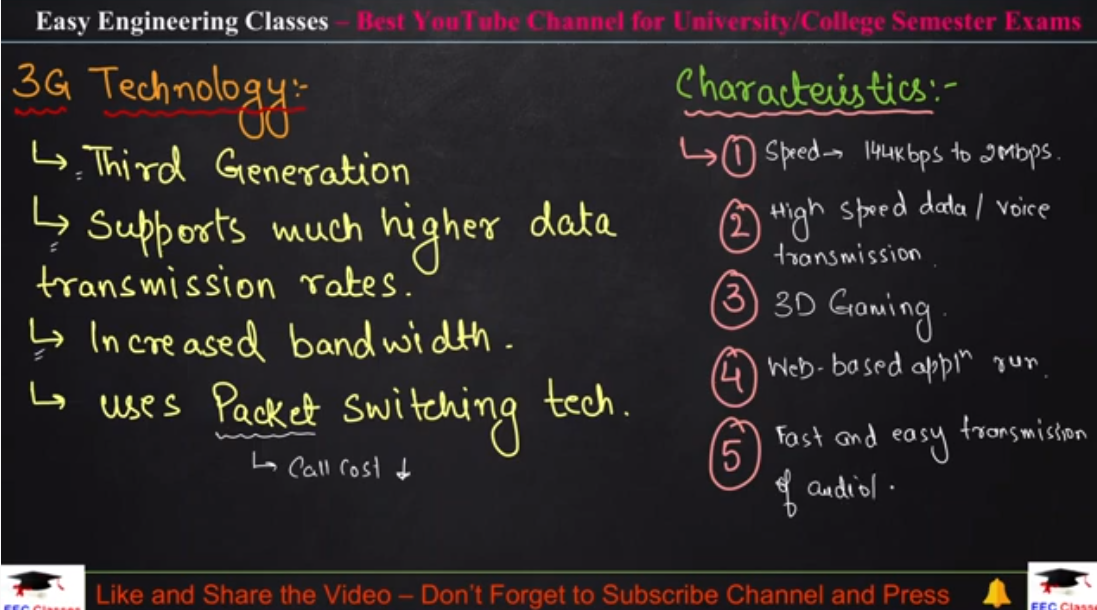 Easy Engineering Classes – Best YouTube Channel for University/College Semester Exams
3G Technology:-
↳ Third Generation
↳ Supports much higher data
transmission rates.
↳ Increased bandwidth.
↳ uses Packet switching tech.
↳ Call cost ↓
Characteristics:-
↳ 1 Speed → 144Kbps to 2Mbps.
2 High speed data / voice
transmission.
3 3D Gaming.
4 Web-based applⁿ run.
5 Fast and easy transmission
of audio/.
Like and Share the Video – Don't Forget to Subscribe Channel and Press
EEC Classes
EEC Classes